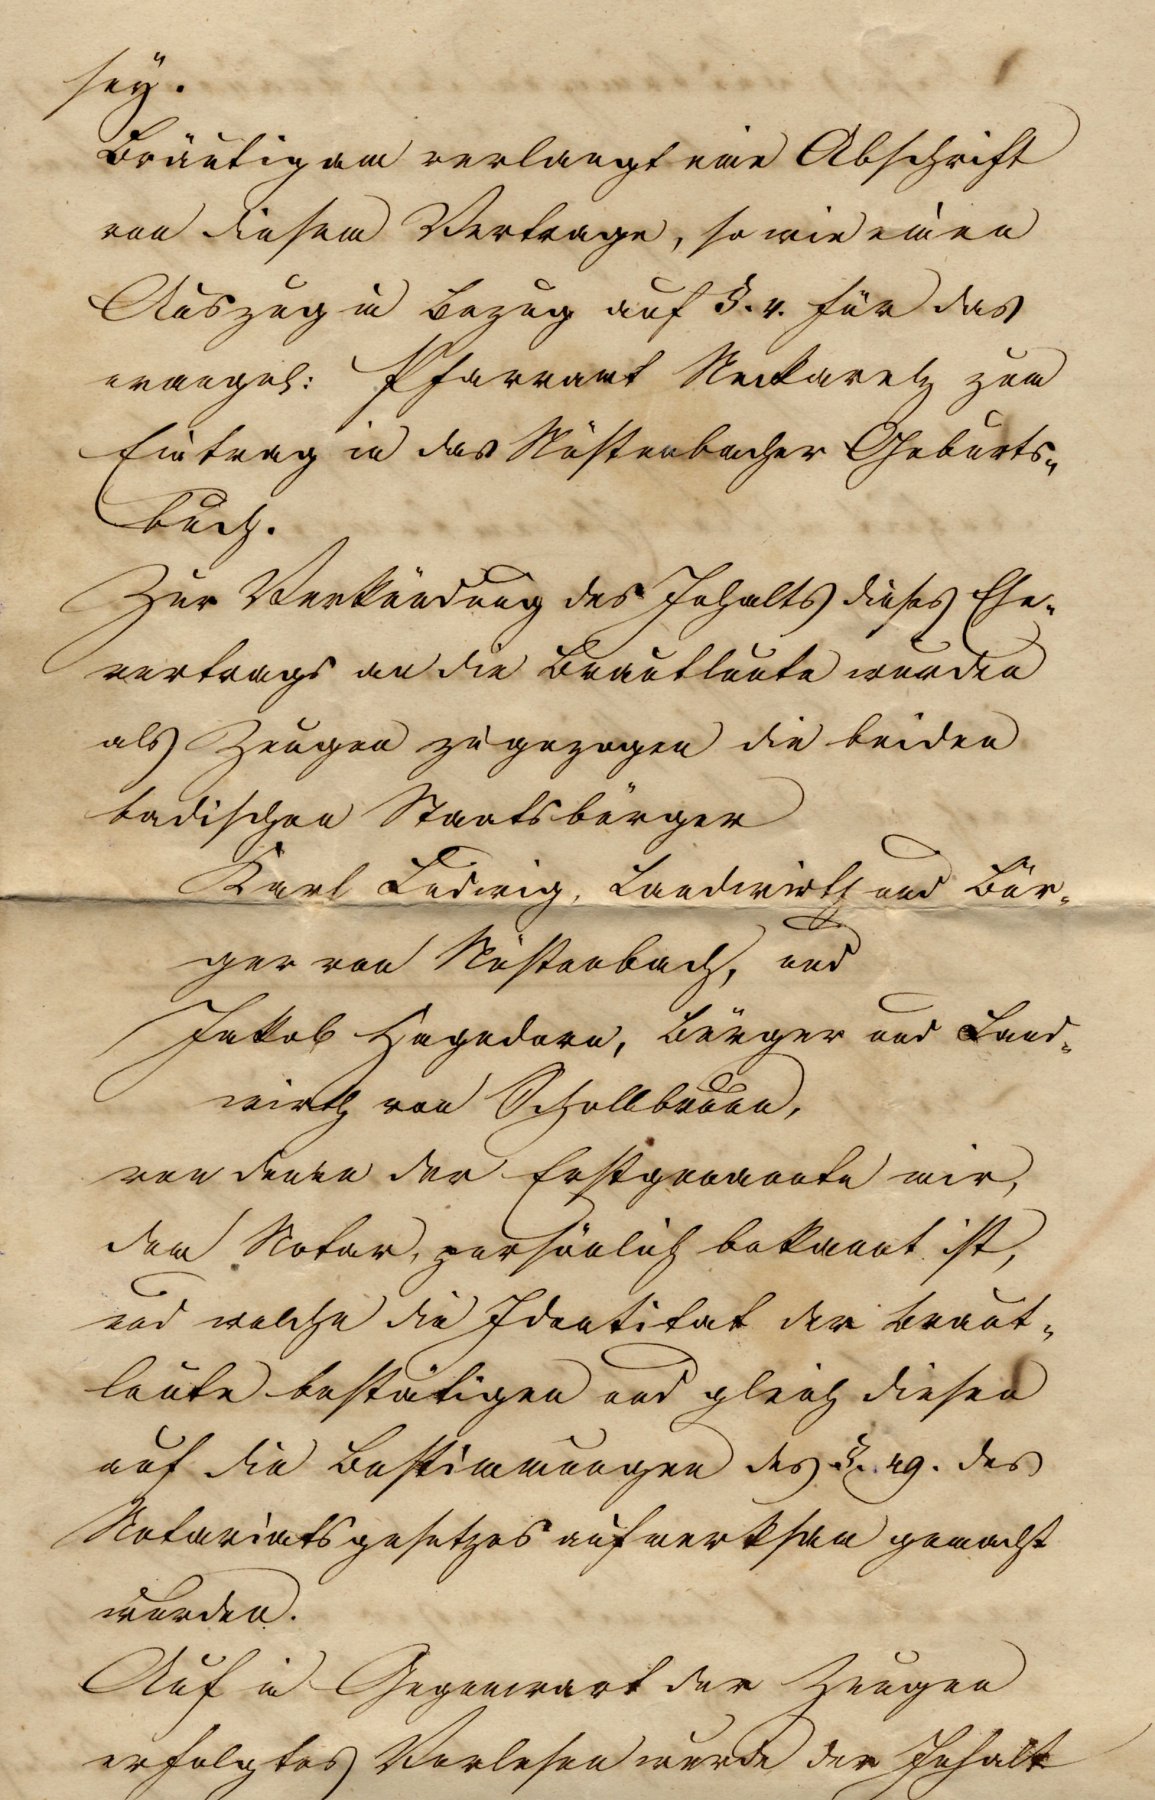 sey.
Bräutigam verlangt eine Abschrift
von diesem Vertrage, so wie einen
Auszug in Bezug auf §. 4. für das
evangel: Pfarramt Neckarelz zum
Eintrag in das Nüstenbacher Geburts-
buch.
Zur Verkündung des Inhalts dieses Ehe-
vertrags an die Brautleute wurden
als Zeugen zugezogen die beiden
badischen Staatsbürger
Karl Ludwig, Landwirth und Bür-
ger von Nüstenbach, und
Jakob Hagedorn, Bürger und Land-
wirth von Schollbrunn,
von denen der Erstgenannte mir,
dem Notar, persönlich bekannt ist,
und welche die Identitat der Braut-
leute bestätigen und gleich diesen
auf die Bestimmungen des §. 49. des
Notariatsgesetzes aufmerksam gemacht
wurden.
Auf in Gegenwart der Zeugen
erfolgtes Vorlesen wurde der Inhalt